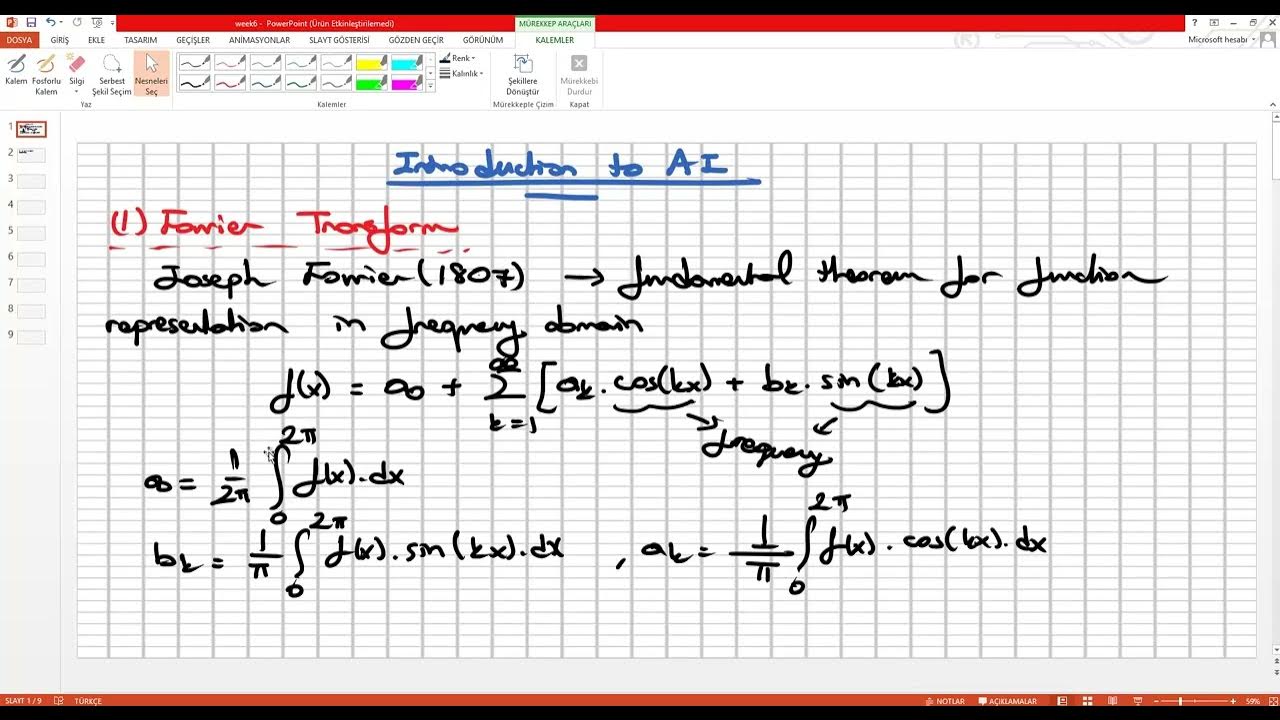 week6 - PowerPoint (Ürün Etkinleştirilemedi)
MÜREKKEP ARAÇLARI
DOSYA GİRİŞ EKLE TASARIM GEÇİŞLER ANİMASYONLAR SLAYT GÖSTERİSİ GÖZDEN GEÇİR GÖRÜNÜM KALEMLER
Microsoft hesabı
Kalem Fosforlu Kalem Silgi Serbest Şekil Seçim Nesneleri Seç
Renk
Kalınlık
Şekillere Dönüştür
Mürekkebi Durdur
Yaz Kalemler Mürekkeple Çizim Kapat
1
2
3
4
5
6
7
8
9
Introduction to AI
(1) Fourier Transform
Joseph Fourier (1807) → fundamental theorem for function
representation in frequency domain
f(x) = a₀ + ∑ k=1 ∞ [aₖ . cos(kx) + bₖ . sin(kx)]
frequency
a₀ = 1/2π ∫ 0 2π f(x) . dx
bₖ = 1/π ∫ 0 2π f(x) . sin(kx) . dx , aₖ = 1/π ∫ 0 2π f(x) . cos(kx) . dx
SLAYT 1 / 9 TÜRKÇE NOTLAR AÇIKLAMALAR 59%